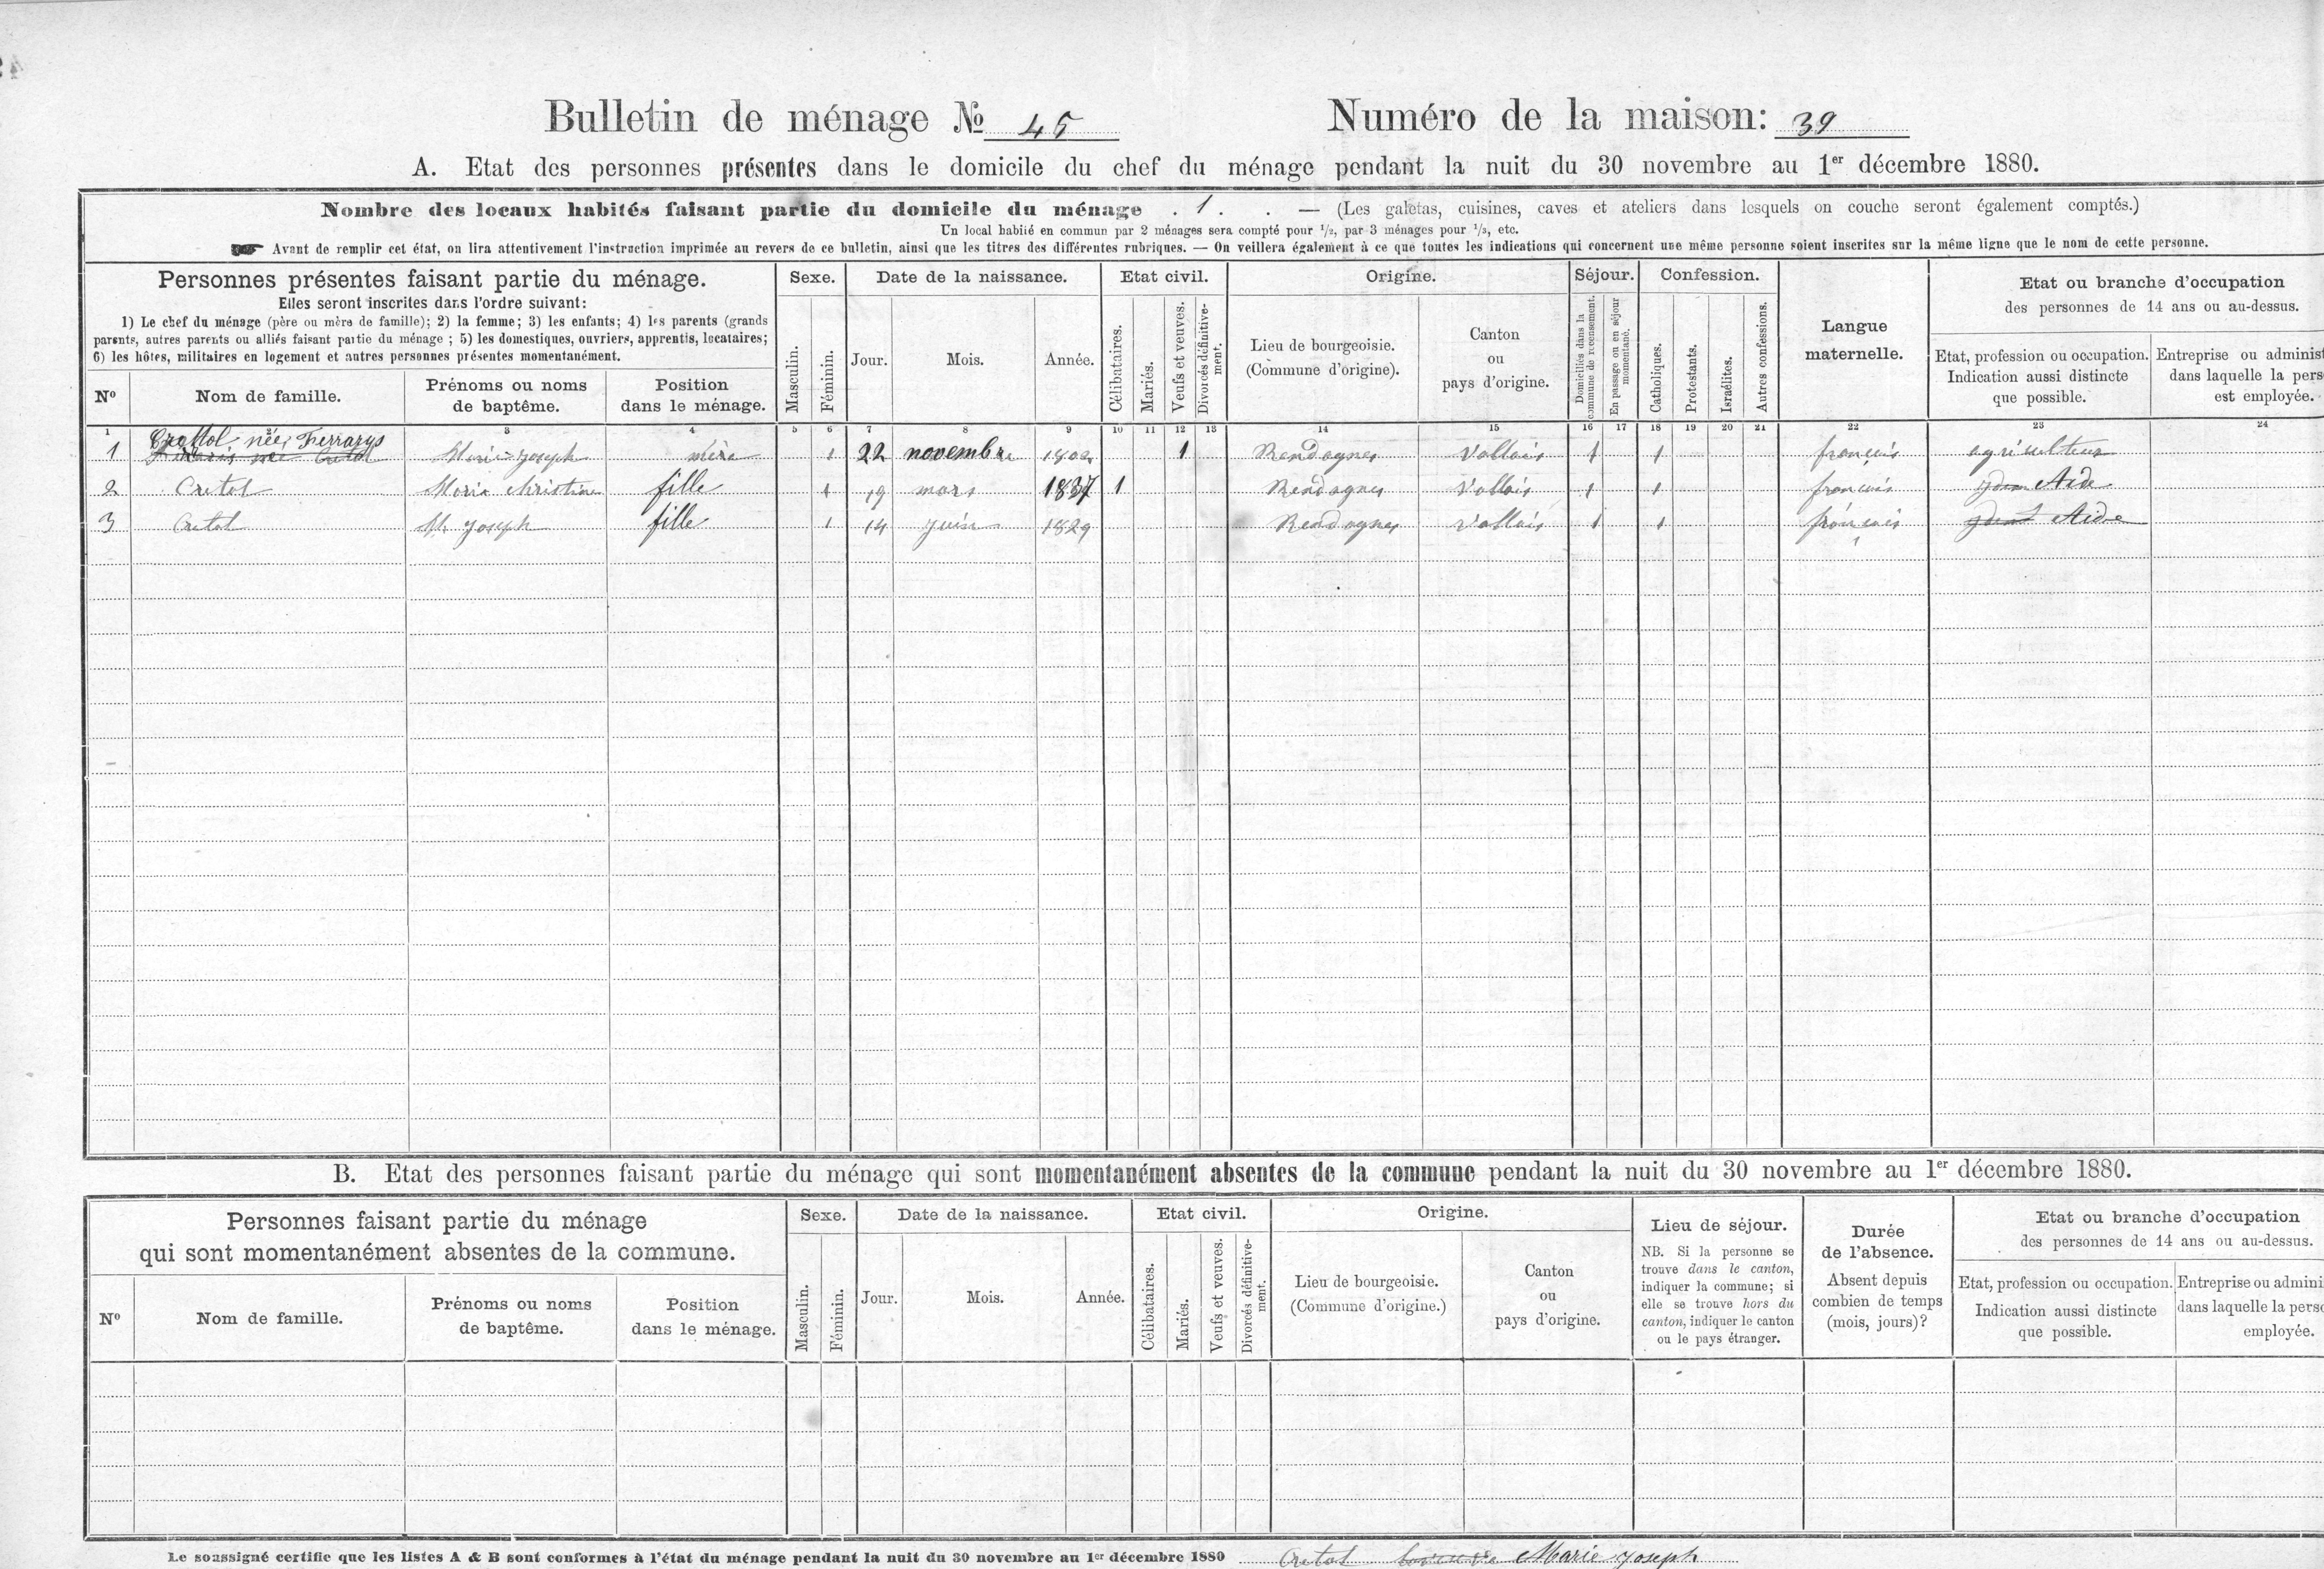 Bulletin de ménage № 45
Numéro de la maison: 39
A. Etat des personnes présentes dans le domicile du chef du ménage pendant la nuit du 30 novembre au 1er décembre 1880.
Nombre des locaux habités faisant partie du domicile du ménage . 1 . . — (Les galetas, cuisines, caves et ateliers dans lesquels on couche seront également comptés.)
Un local habité en commun par 2 ménages sera compté pour 1/2, par 3 ménages pour 1/3, etc.
Avant de remplir cet état, on lira attentivement l'instruction imprimée au revers de ce bulletin, ainsi que les titres des différentes rubriques. — On veillera également à ce que toutes les indications qui concernent une même personne soient inscrites sur la même ligne que le nom de cette personne.
Personnes présentes faisant partie du ménage.
Elles seront inscrites dans l'ordre suivant:
1) Le chef du ménage (père ou mère de famille); 2) la femme; 3) les enfants; 4) les parents (grands
parents, autres parents ou alliés faisant partie du ménage ; 5) les domestiques, ouvriers, apprentis, locataires;
6) les hôtes, militaires en logement et autres personnes présentes momentanément.
Nº
Nom de famille.
Prénoms ou noms
de baptême.
Position
dans le ménage.
Sexe.
Masculin.
Féminin.
Date de la naissance.
Jour.
Mois.
Année.
Etat civil.
Célibataires.
Mariés.
Veufs et veuves.
Divorcés définitive-
ment.
Origine.
Lieu de bourgeoisie.
(Commune d'origine).
Canton
ou
pays d'origine.
Séjour.
Domiciliés dans la
commune de recensement.
En passage ou en séjour
momentané.
Confession.
Catholiques.
Protestants.
Israélites.
Autres confessions.
Langue
maternelle.
Etat ou branche d'occupation
des personnes de 14 ans ou au-dessus.
Etat, profession ou occupation.
Indication aussi distincte
que possible.
Entreprise ou administ
dans laquelle la pers
est employée.
1 2 3 4 5 6 7 8 9 10 11 12 13 14 15 16 17 18 19 20 21 22 23 24
Crettol née Ferrarys
1 née Cretol Marie Joseph mère 1 22 novembre 1802 1 Rendognes Vallais 1 1 français agriculteur
2 Cretol Marie Christine fille 1 19 mars 1837 1 Rendognes Vallais 1 1 français Idem Aide
3 Cretol M. Joseph fille 1 14 juin 1829 Rendognes Vallais 1 1 français Idem Aide
B. Etat des personnes faisant partie du ménage qui sont momentanément absentes de la commune pendant la nuit du 30 novembre au 1er décembre 1880.
Personnes faisant partie du ménage
qui sont momentanément absentes de la commune.
Nº
Nom de famille.
Prénoms ou noms
de baptême.
Position
dans le ménage.
Sexe.
Masculin.
Féminin.
Date de la naissance.
Jour.
Mois.
Année.
Etat civil.
Célibataires.
Mariés.
Veufs et veuves.
Divorcés définitive-
ment.
Origine.
Lieu de bourgeoisie.
(Commune d'origine.)
Canton
ou
pays d'origine.
Lieu de séjour.
NB. Si la personne se
trouve dans le canton,
indiquer la commune; si
elle se trouve hors du
canton, indiquer le canton
ou le pays étranger.
Durée
de l'absence.
Absent depuis
combien de temps
(mois, jours)?
Etat ou branche d'occupation
des personnes de 14 ans ou au-dessus.
Etat, profession ou occupation.
Indication aussi distincte
que possible.
Entreprise ou admini
dans laquelle la perso
employée.
Le soussigné certifie que les listes A & B sont conformes à l'état du ménage pendant la nuit du 30 novembre au 1er décembre 1880 Cretol Marie Joseph